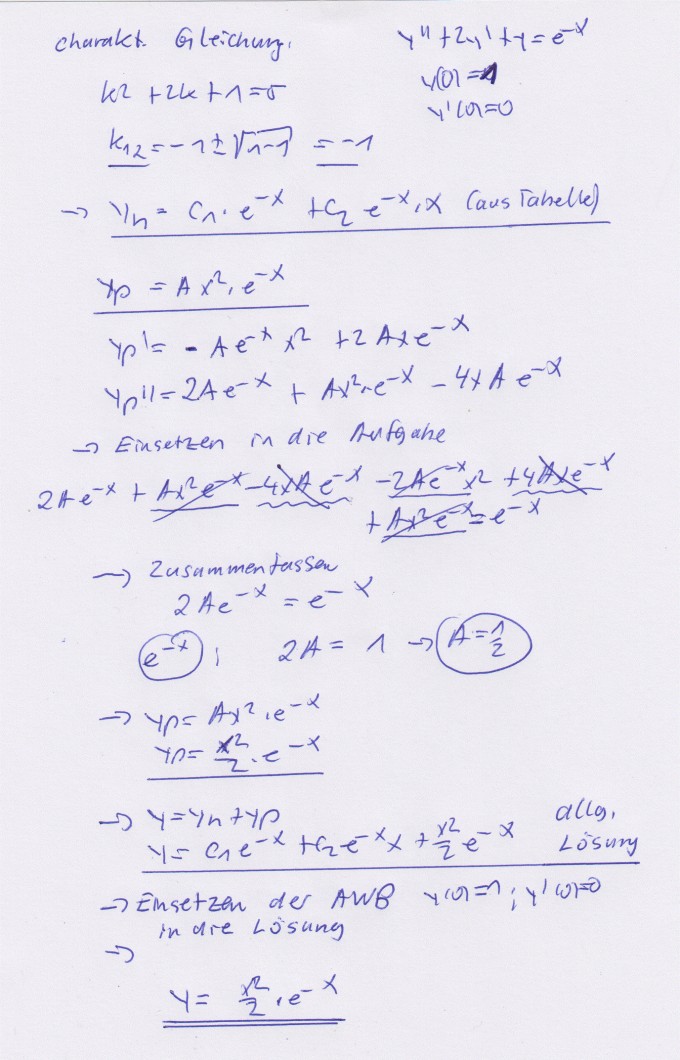 charakt. Gleichung.
y'' + 2y' + y = e^-x
y(0) = 1
y'(0) = 0
k² + 2k + 1 = 0
k₁₂ = -1 ± √1-1 = -1
→ yh = C₁ · e^-x + C₂ e^-x · x (aus Tabelle)
yp = A x² · e^-x
yp' = - A e^-x x² + 2 A x e^-x
yp'' = 2A e^-x + Ax² · e^-x - 4x A e^-x
→ Einsetzen in die Aufgabe
2A e^-x + Ax² e^-x - 4x A e^-x - 2A e^-x x² + 4 A x e^-x
+ Ax² e^-x = e^-x
→ Zusammenfassen
2 A e^-x = e^-x
e^-x : 2A = 1 → A = 1/2
→ yp = Ax² · e^-x
yp = x²/2 · e^-x
→ y = yh + yp
y = C₁ e^-x + C₂ e^-x x + x²/2 e^-x
allg.
Lösung
→ Einsetzen der AWB y(0) = 1 ; y'(0) = 0
in die Lösung
→
y = x²/2 · e^-x